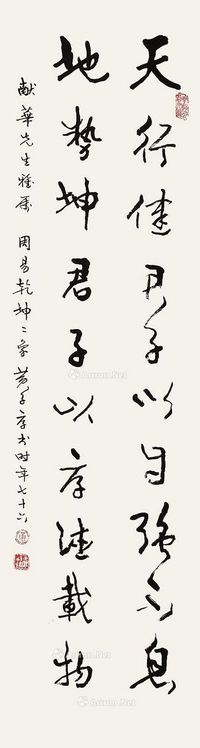 天行健君子以自强不息
地势坤君子以厚德载物
献华先生雅属 周易乾坤二象 黄子厚书时年七十六